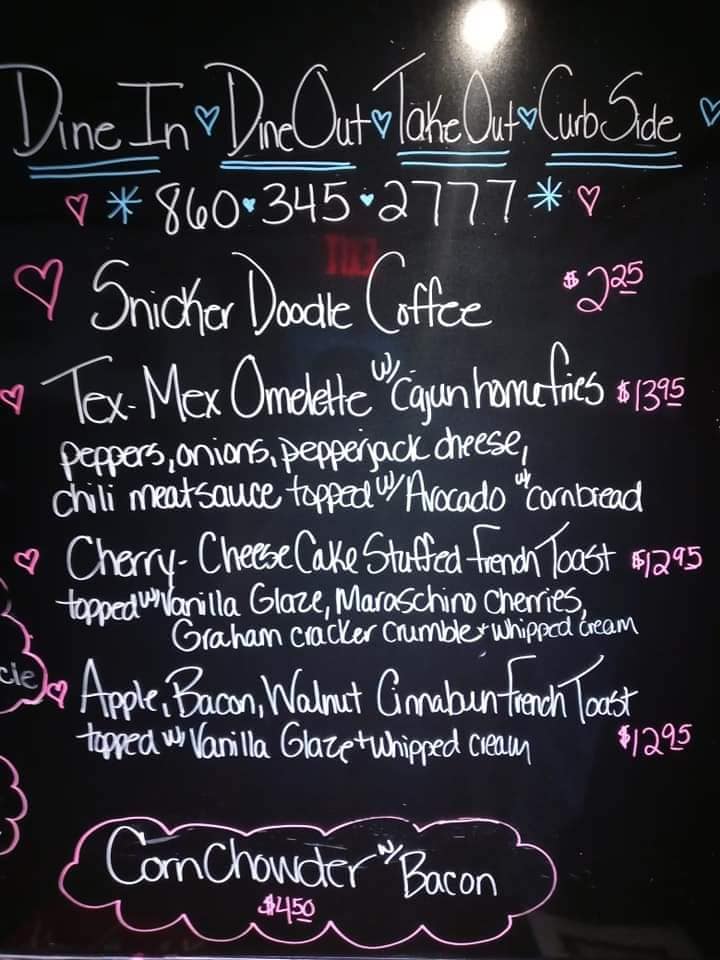 Dine In Dine Out Take Out Curb Side
860 345 2777
Snicker Doodle Coffee $2.25
Tex-Mex Omelette w/ Cajun home fries $13.95
peppers, onions, pepperjack cheese,
chili meatsauce topped w/ Avocado w/ cornbread
Cherry-Cheese Cake Stuffed French Toast $12.95
topped w/ Vanilla Glaze, Maraschino Cherries,
Graham cracker crumble + whipped cream
cle
Apple, Bacon, Walnut Cinnabun French Toast
topped w/ Vanilla Glaze + whipped cream $12.95
Corn Chowder w/ Bacon
$4.50